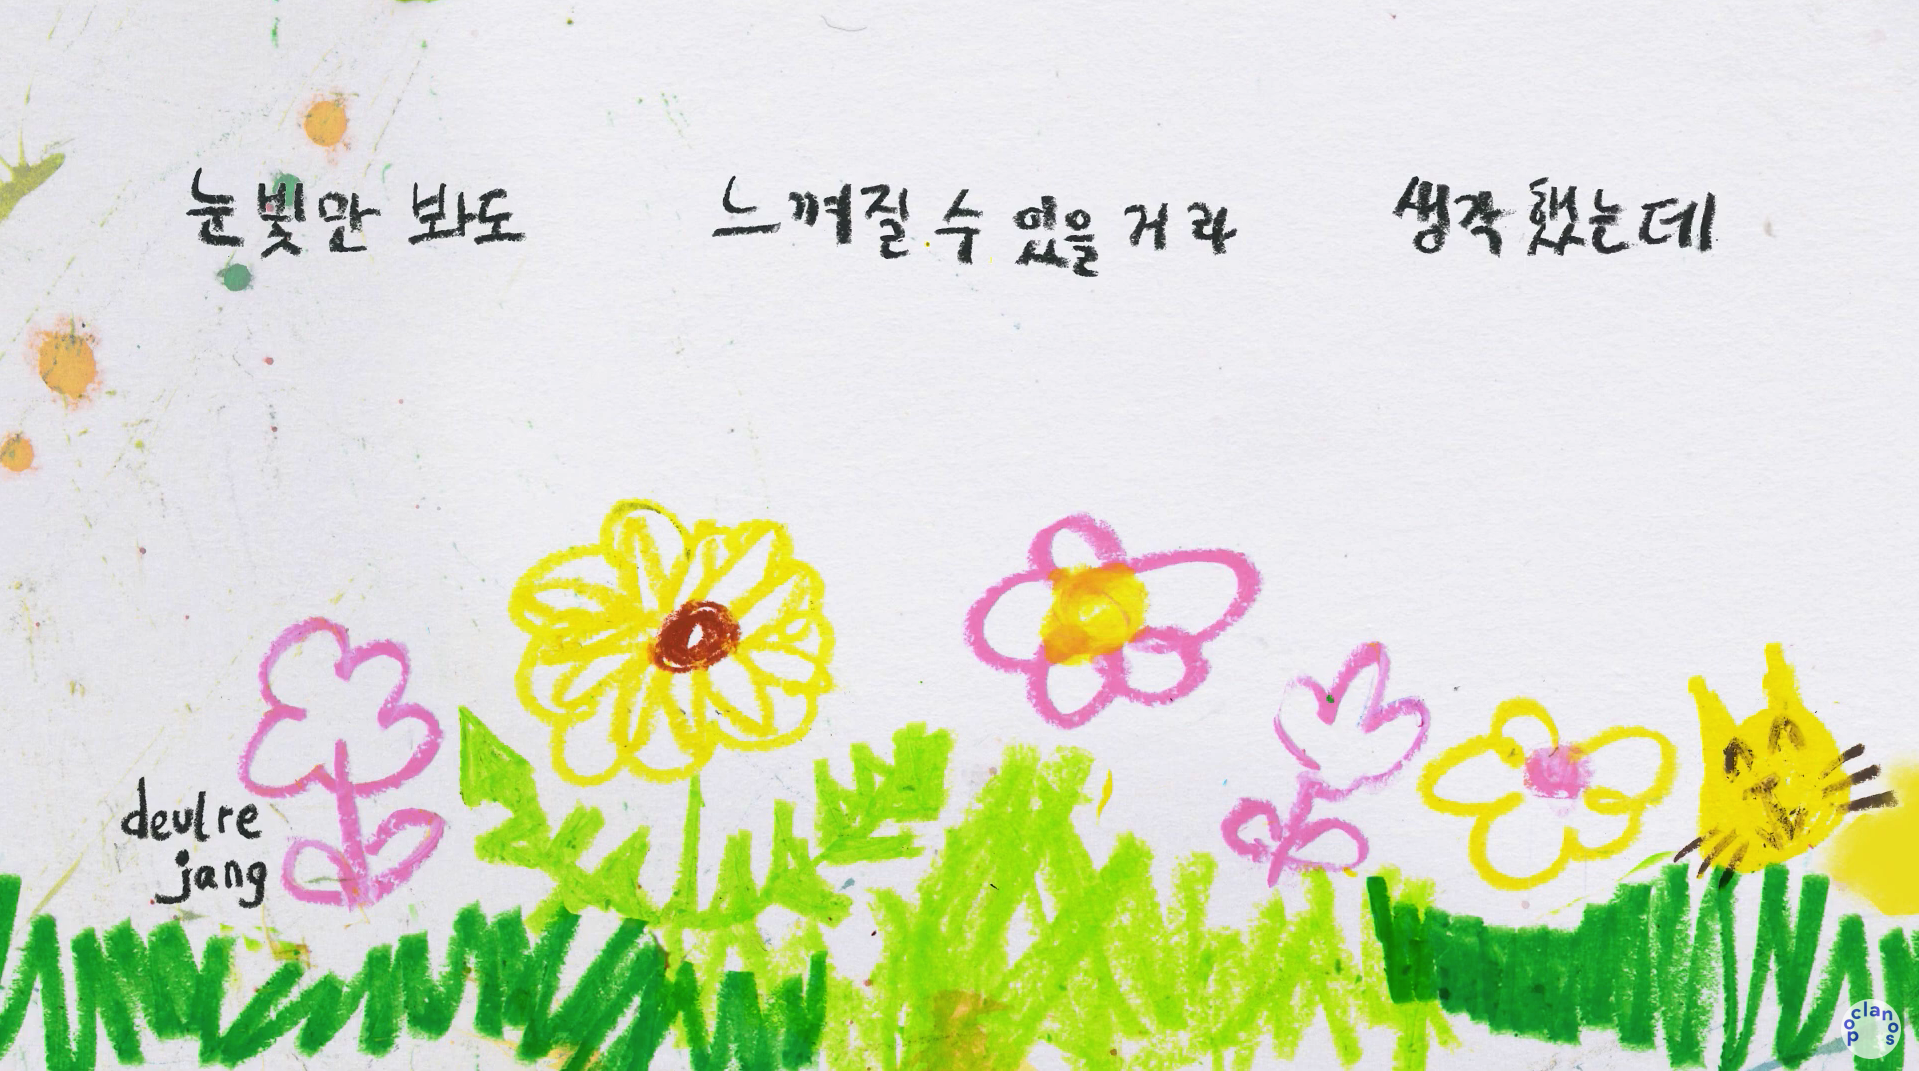 눈빛만 봐도 느껴질 수 있을 거라 생각했는데
deulre
jang
poclanos